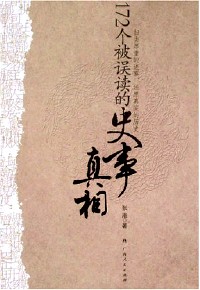 172个被误读的
史事
真相
张港 著
广西人民出版社